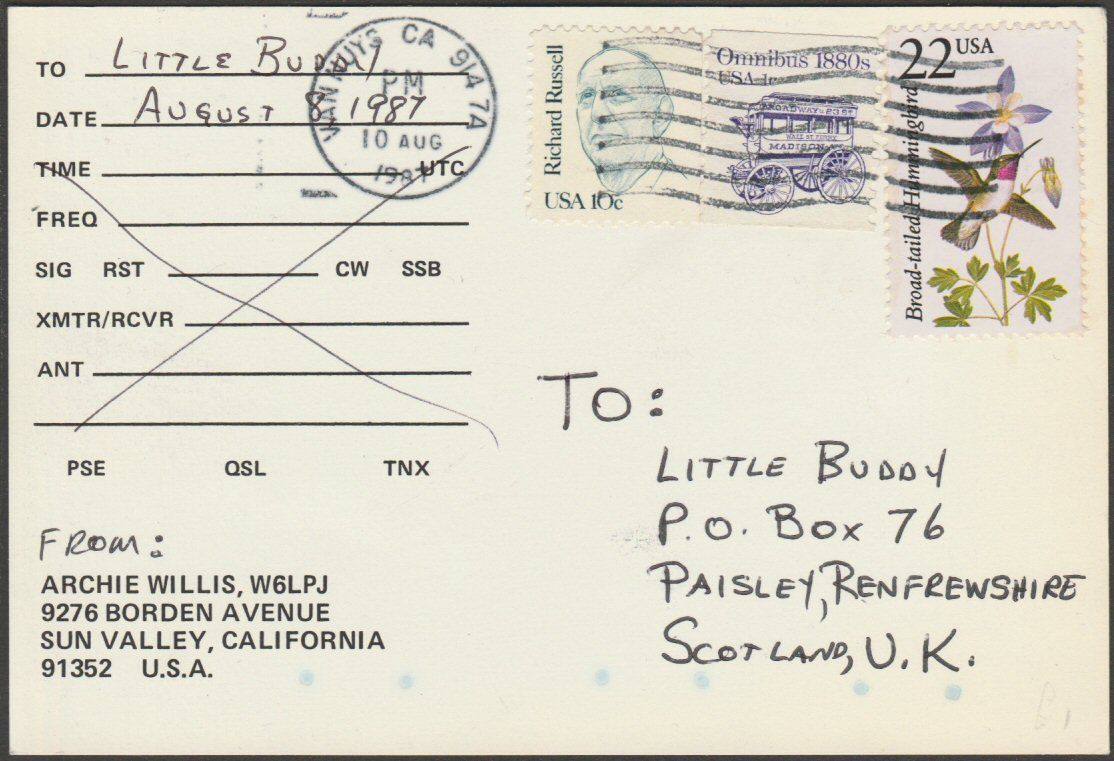 TO LITTLE BUDDY
DATE AUGUST 8, 1987
TIME UTC
FREQ
SIG RST CW SSB
XMTR/RCVR
ANT
PSE QSL TNX
FROM:
ARCHIE WILLIS, W6LPJ
9276 BORDEN AVENUE
SUN VALLEY, CALIFORNIA
91352 U.S.A.
VAN NUYS CA 914 7A
PM
10 AUG
1987
Richard Russell
USA 10c
Omnibus 1880s
USA 1c
BROADWAY & 23 St
WALL ST. FERRY
MADISON AV.
22 USA
Broad-tailed Hummingbird
TO:
LITTLE BUDDY
P.O. BOX 76
PAISLEY, RENFREWSHIRE
SCOTLAND, U.K.